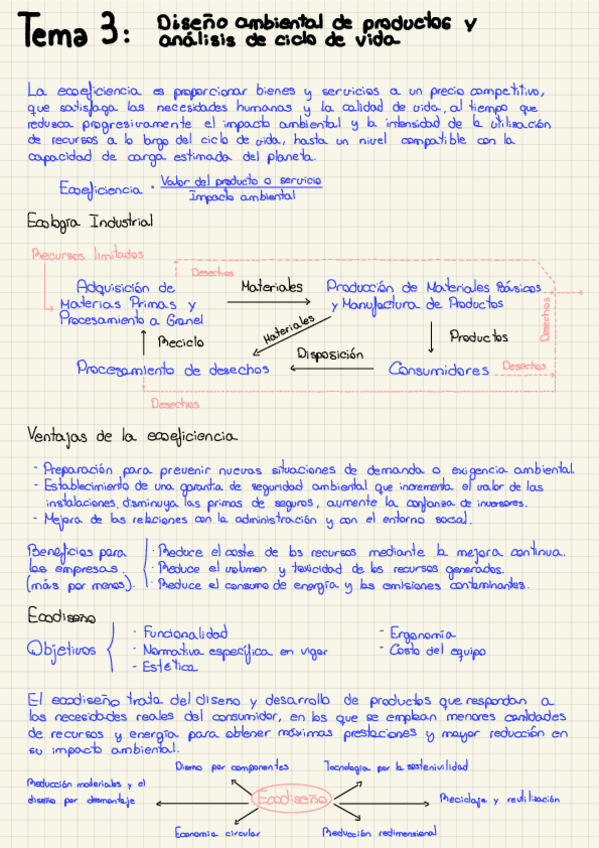 Tema 3: Diseño ambiental de productos y
análisis de ciclo de vida
La ecoeficiencia es proporcionar bienes y servicios a un precio competitivo,
que satisfaga las necesidades humanas y la calidad de vida, al tiempo que
reduzca progresivamente el impacto ambiental y la intensidad de la utilización
de recursos a lo largo del ciclo de vida, hasta un nivel compatible con la
capacidad de carga estimada del planeta.
Ecoeficiencia = Valor del producto o servicio
Impacto ambiental
Ecología Industrial
Recursos limitados
Desechos
Adquisición de
Materias Primas y
Procesamiento a Granel
Materiales
Producción de Materiales Básicos
y Manufactura de Productos
Desechos
Materiales
Reciclo
Productos
Disposición
Procesamiento de desechos
Consumidores
Desechos
Desechos
Ventajas de la ecoeficiencia
- Preparación para prevenir nuevas situaciones de demanda o exigencia ambiental.
- Establecimiento de una garantía de seguridad ambiental que incrementa el valor de las
instalaciones, disminuya las primas de seguros, aumente la confianza de inversores.
- Mejora de las relaciones con la administración y con el entorno social.
Beneficios para
las empresas.
(más por menos).
· Reduce el coste de los recursos mediante la mejora continua.
· Reduce el volumen y toxicidad de los recursos generados.
· Reduce el consumo de energía y las emisiones contaminantes.
Ecodiseño
Objetivos
- Funcionalidad
- Normativa específica en vigor
- Estética
- Ergonomía
- Coste del equipo
El ecodiseño trata del diseño y desarrollo de productos que respondan a
las necesidades reales del consumidor, en los que se emplean menores cantidades
de recursos y energía para obtener máximas prestaciones y mayor reducción en
su impacto ambiental.
Diseño por componentes
Tecnología por la sostenivilidad
Reducción materiales y el
diseño por desmontaje
Ecodiseño
Reciclaje y reutilización
Economía circular
Reducción redimensional